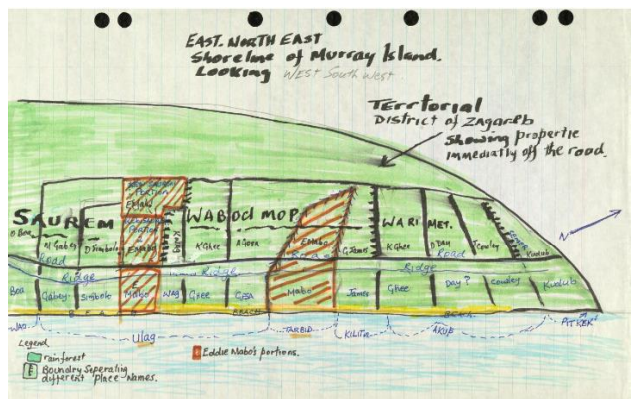 EAST. NORTH EAST
Shoreline of Murray Island.
Looking WEST South West.
Territorial
DISTRICT of ZAGAREB
Showing propertie
immediatly off the road.
SAUREM
WABOd MOP.
WARI MET.
PORTION
EMabo
EMabo
K Wag
K Ghee
A Gesa
EMabo
G James
K Ghee
D Day
J Cowley
Kudub
N
Road
Road
Ridge
Ridge
Ridge
Boa
Gabey
Simbolo
Mabo
Wag
Ghee
GESA
Mabo
James
Ghee
Day?
Cowley
Kudub
BEACH
Ulag
TARBID
KILITA
AKUP
PITKER
Legend
rainforest
Boundry Seperating
different Place Names.
Eddie Mabo's portions.